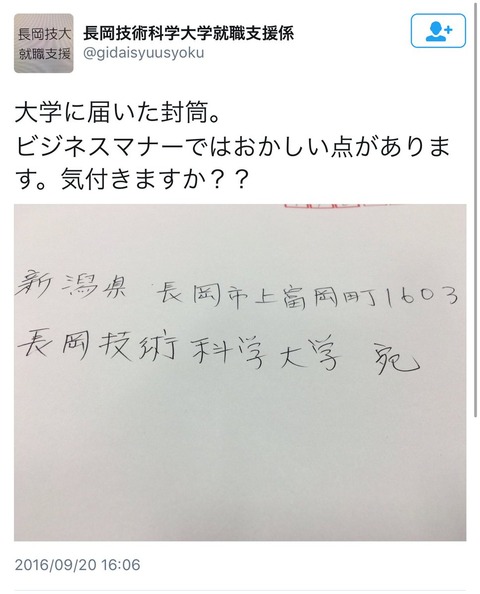 長岡技大
就職支援
長岡技術科学大学就職支援係
@gidaisyuusyoku
大学に届いた封筒。
ビジネスマナーではおかしい点がありま
す。気付きますか？？
新潟県 長岡市上富岡町1603
長岡技術科学大学 宛
2016/09/20 16:06